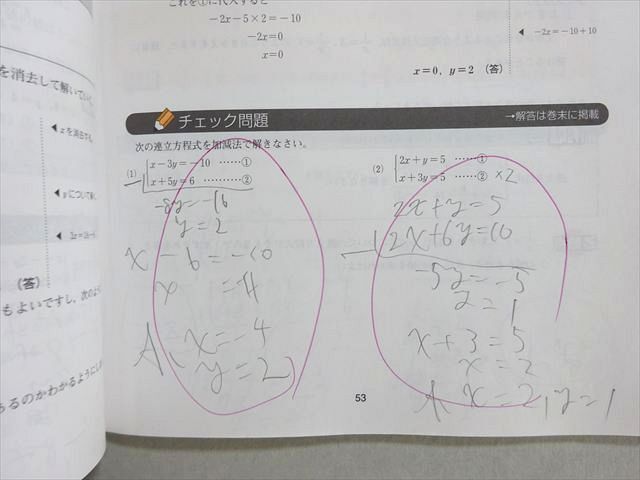 これを①に代入すると
−2x−5×2=−10
−2x=0
x=0
◀ −2x=−10+10
x=0, y=2 (答)
を消去して解いて
◀ xを消去する
◀ yについて解く
(答)
もよいですし、次のよう
るのかわかるようにし
チェック問題
→解答は巻末に掲載
次の連立方程式を加減法で解きなさい。
(1) x−3y=−10 ……①
x+5y=6 ………②
−8y=−16
y=2
x−6=−10
x =−4
A、x=−4
y=2
(2) 2x+y=5 ……①
x+3y=5 ……② ×2
2x+y=5
−) 2x+6y=10
−5y=−5
y=1
x+3=5
x=2
A、x=2, y=1
53